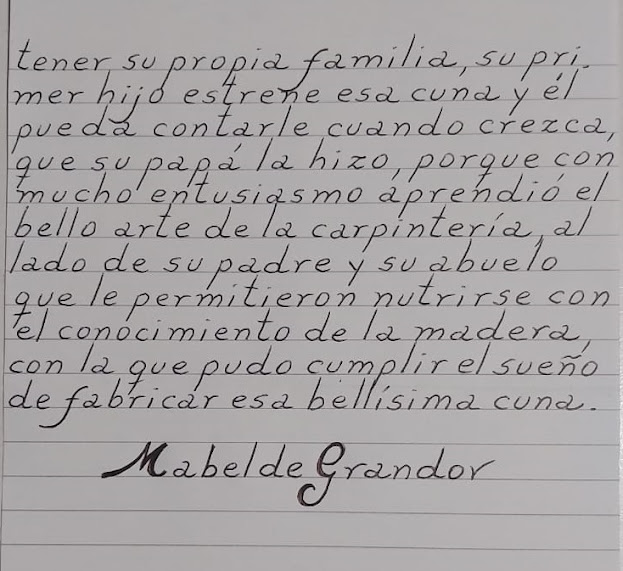 tener su propia familia, su pri-
mer hijo estrene esa cuna y él
pueda contarle cuando crezca,
que su papá la hizo, porque con
mucho entusiasmo aprendió el
bello arte de la carpintería, al
lado de su padre y su abuelo
que le permitieron nutrirse con
el conocimiento de la madera,
con la que pudo cumplir el sueño
de fabricar esa bellísima cuna.
Mabel de Grandor